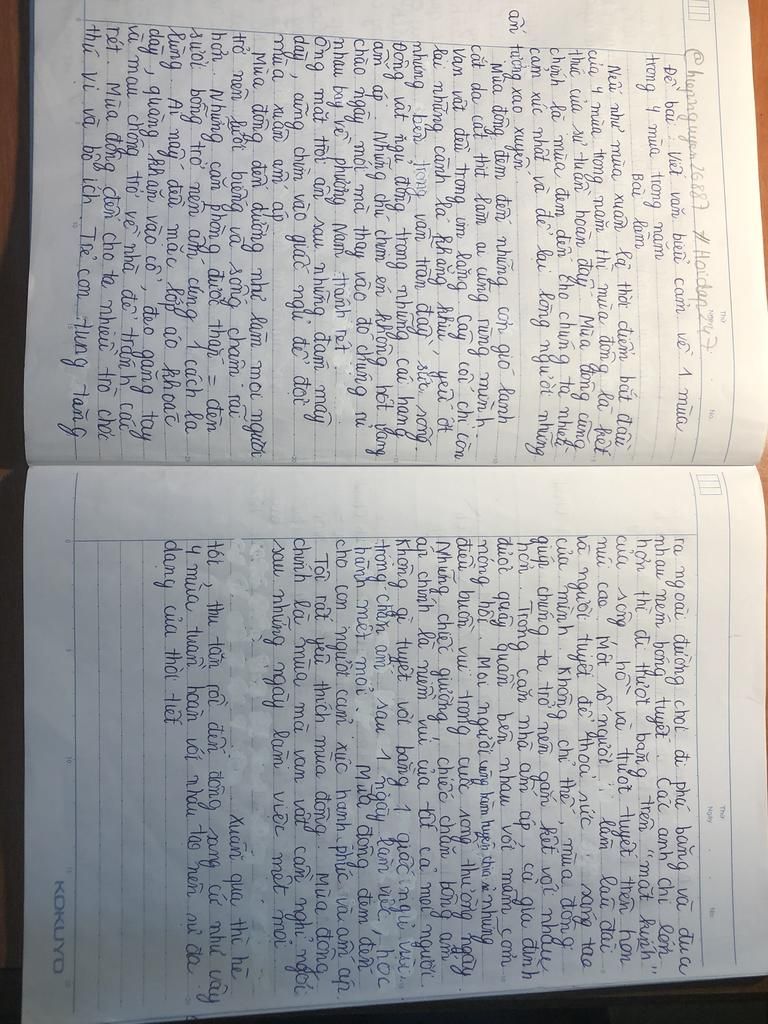 Thứ
Ngày
No.
@hiepnguyen26887 #Hoidap247
Đề bài: Viết văn biểu cảm về 1 mùa
trong 4 mùa trong năm
Bài làm
Nếu như mùa xuân là thời điểm bắt đầu
của 4 mùa trong năm thì mùa đông là kết
thúc của sự tuần hoàn đấy. Mùa đông cũng
chính là mùa đem đến cho chúng ta nhiều
cảm xúc nhất và để lại lòng người những
ấn tượng xao xuyến
Mùa đông đem đến những cơn gió lạnh
cắt da cắt thịt làm ai cũng rùng mình
Vạn vật đều trong im lặng. Cây cối chỉ còn
lại những cành lá khẳng khiu, yếu ớt
nhưng bên trong vẫn tràn đầy sức sống.
Động vật ngủ đông trong những cái hang
ấm áp. Những chú chim én không hót vang
chào ngày mới mà thay vào đó chúng rủ
nhau bay về phương Nam tránh rét
Ông mặt trời ẩn sau những đám mây
dày, cũng chìm vào giấc ngủ để đợi
mùa xuân ấm áp.
Mùa đông đến dường như làm mọi người
trở nên lười biếng và sống chậm rãi
hơn. Những căn phòng được thắp = đèn
sưởi bỗng trở nên ấm cúng 1 cách lạ
lùng. Ai nấy đều mặc lớp áo khoác
dày, quàng khăn vào cổ, đeo găng tay
và mau chóng trở về nhà để tránh cái
rét. Mùa đông đến cho ta nhiều trò chơi
thú vị và bổ ích. Trẻ con tung tăng
Thứ
Ngày
No.
ra ngoài đường chơi đi phủ băng và đua
nhau ném bóng tuyết. Các anh chị lớn
hơn thì đi trượt băng trên "mặt kính"
của sông, hồ và trượt tuyết trên hòn
núi cao. Một số người làm lâu đài
và người tuyết để thỏa sức sáng tạo
của mình. Không chỉ thế, mùa đông
giúp chúng ta trở nên gắn kết với nhau
hơn. Trong căn nhà ấm áp, cả gia đình
được quây quần bên nhau với mâm cơm
nóng hổi. Mọi người cùng hàn huyên, chia sẻ những
điều buồn vui trong cuộc sống thường ngày.
Những chiếc giường, chiếc chăn bông ấm
áp chính là niềm vui của tất cả mọi người
Không gì tuyệt vời bằng 1 giấc ngủ vùi
trong chăn ấm sau 1 ngày làm việc, học
hành mệt mỏi. Mùa đông đem đến
cho con người cảm xúc hạnh phúc và ấm áp.
Tôi rất yêu thích mùa đông. Mùa đông
chính là mùa mà vạn vật cần nghỉ ngơi
sau những ngày làm việc mệt mỏi
xuân qua thì hè
tới, thu tàn rồi đến đông sang cứ như vậy
4 mùa tuần hoàn với nhau tạo nên sự đa
dạng của thời tiết
KOKUYO